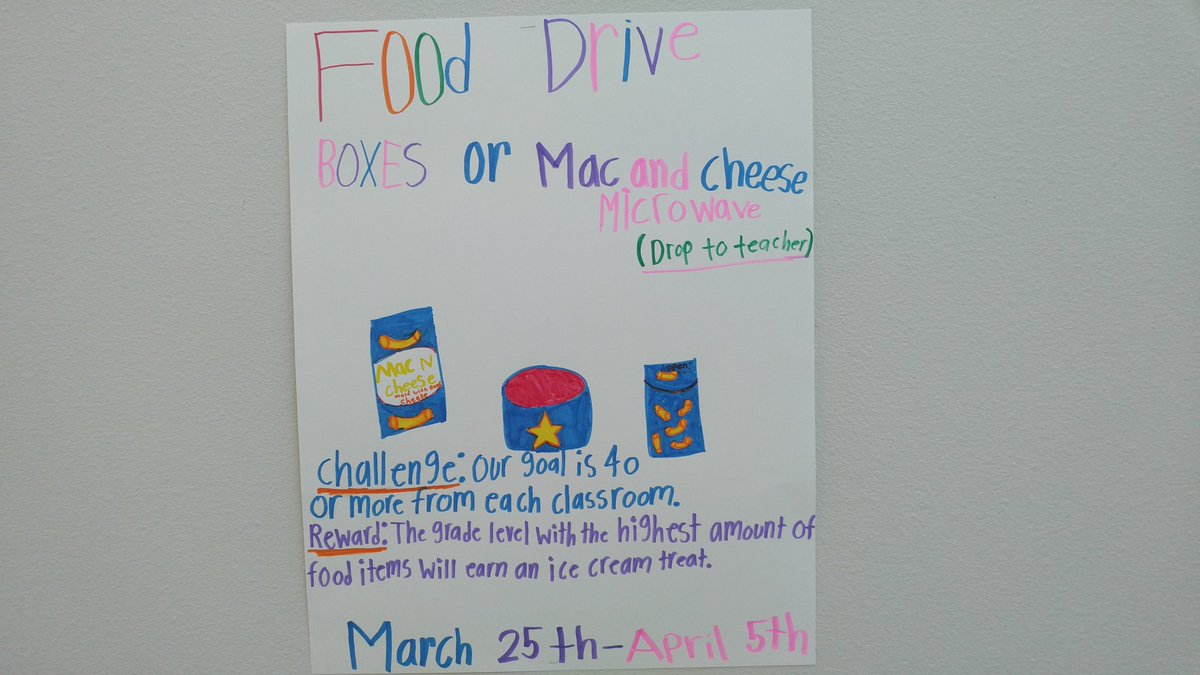 Food Drive
BOXES or Mac and cheese
Microwave
(Drop to teacher)
Mac N
cheese
maid with Real
cheese
open:
challenge: Our goal is 40
or more from each classroom.
Reward: The grade level with the highest amount of
food items will earn an ice cream treat.
March 25th-April 5th